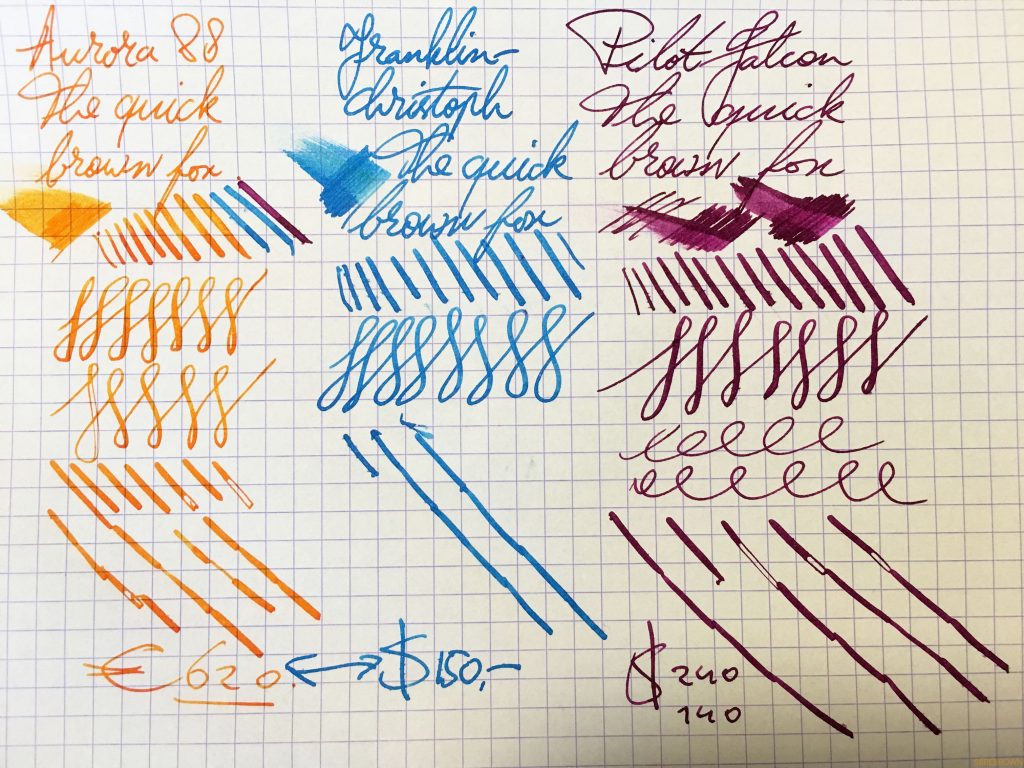 Aurora 88
The quick
brown fox
€ 620.
Franklin-
Christoph
The quick
brown fox
$150,-
Pilot Falcon
The quick
brown fox
$ 240
140